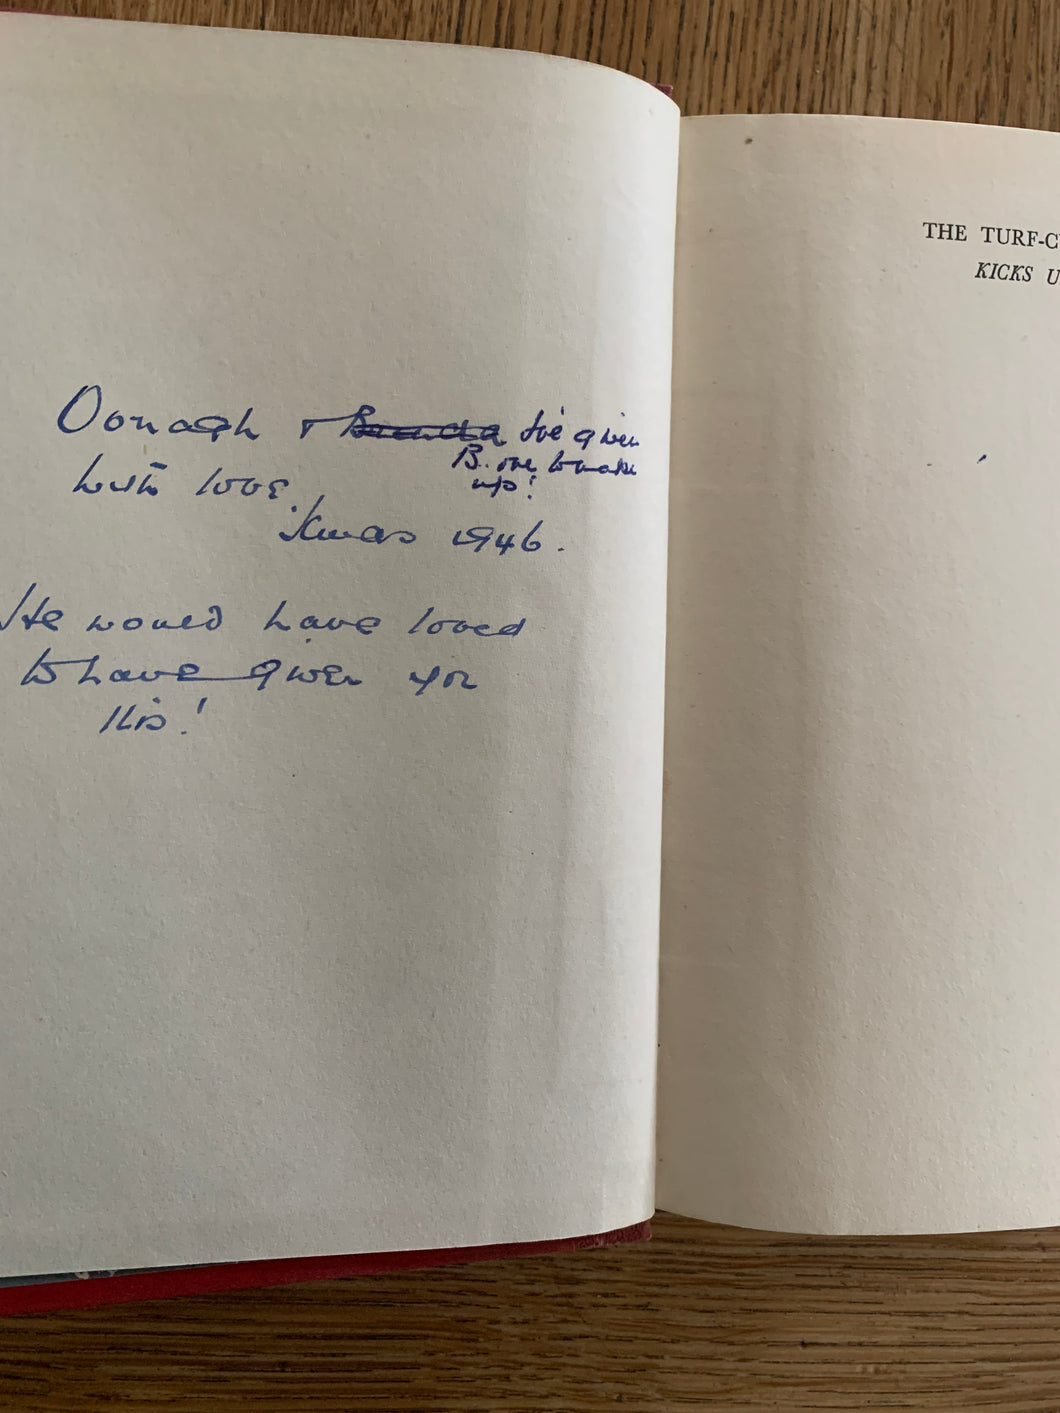 Oonagh + Brenda I've given
B. one to make
up!
with love.
Xmas 1946.
He would have loved
to have given you
this!
THE TURF-C
KICKS U